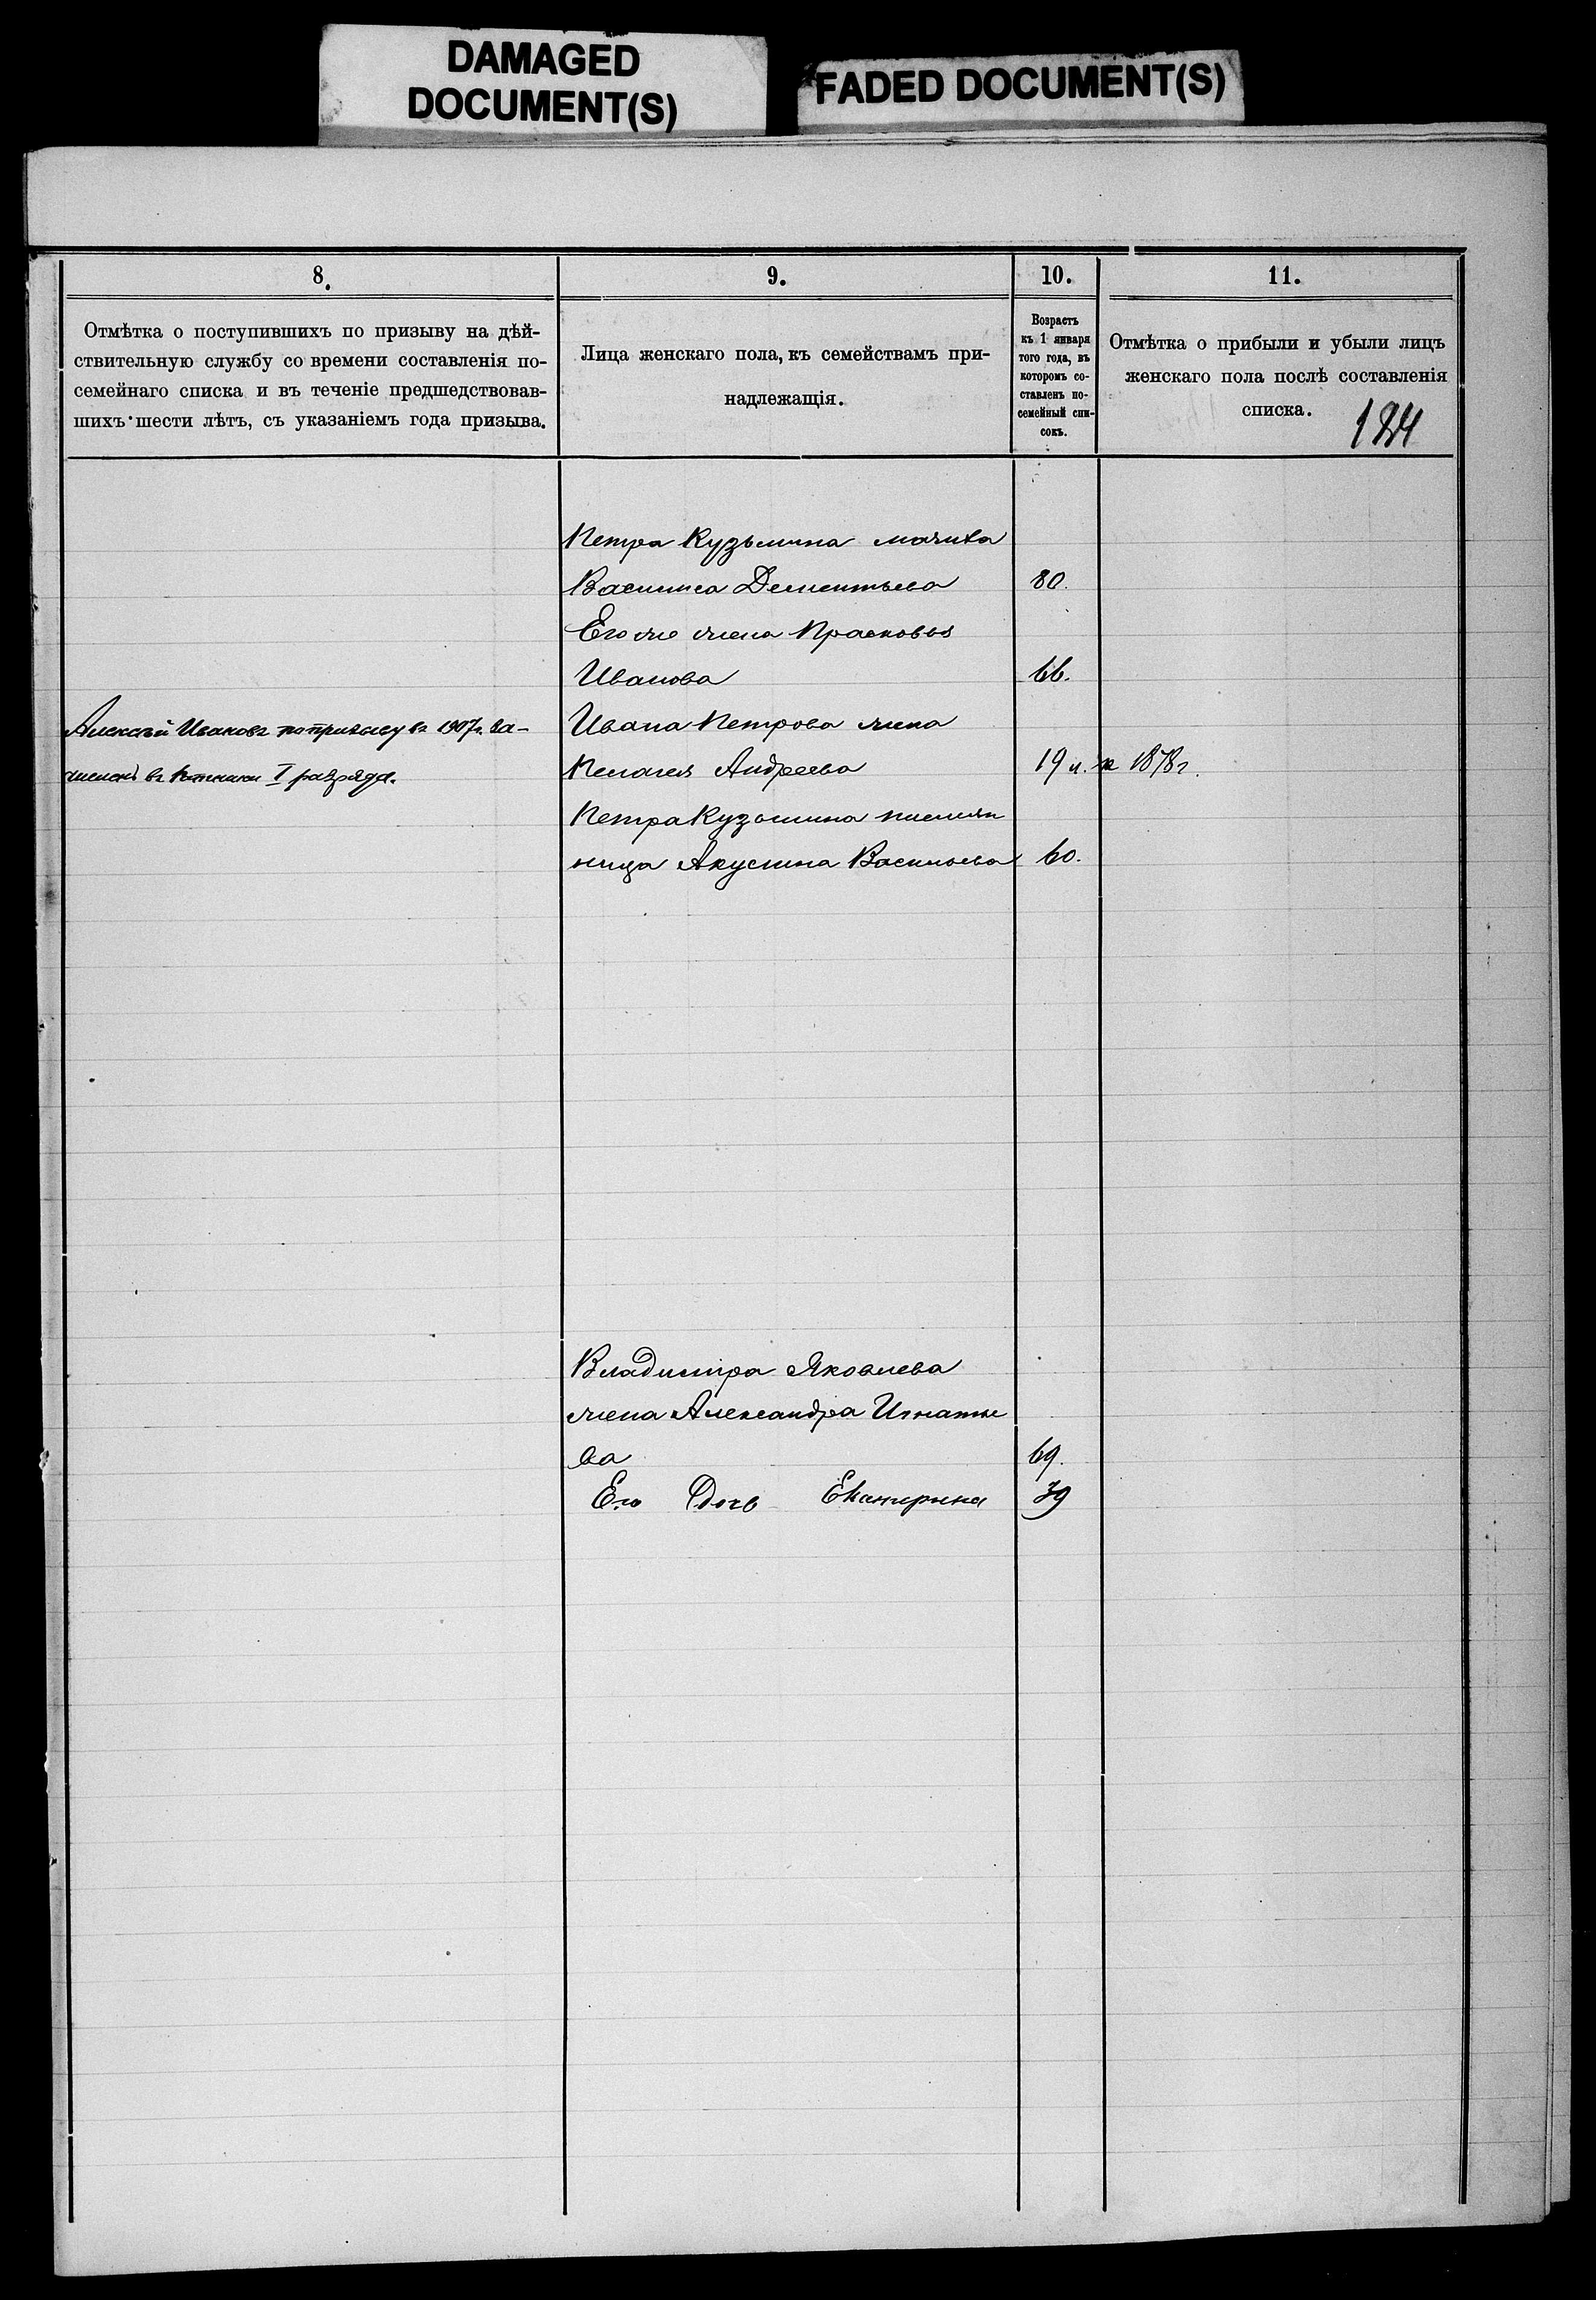 DAMAGED
DOCUMENT(S)
FADED DOCUMENT(S)
8.
9.
10.
11.
Отмѣтка о поступившихъ по призыву на дѣй-
ствительную службу со времени составленія по-
семейнаго списка и въ теченіе предшедствовав-
шихъ шести лѣтъ, съ указаніемъ года призыва.
Лица женскаго пола, къ семействамъ при-
надлежащія.
Возрастъ
къ 1 января
того года, въ
которомъ со-
ставленъ по-
семейный спи-
сокъ.
Отмѣтка о прибыли и убыли лицъ
женскаго пола послѣ составленія
списка.
184
Петра Кузьмина мачиха
Василиса Дементьева 80.
Его же жена Прасковья
Иванова 66.
Алексѣй Ивановъ по призыву въ 1907 г. за-
численъ въ ратники I разряда.
Ивана Петрова жена
Пелагея Андреева 19 л. 1878 г.
Петра Кузьмина племян
ница Акулина Васильева 60.
Владимира Яковлева
жена Александра Игнатье
ва 69.
Его Дочь Екатерина 39